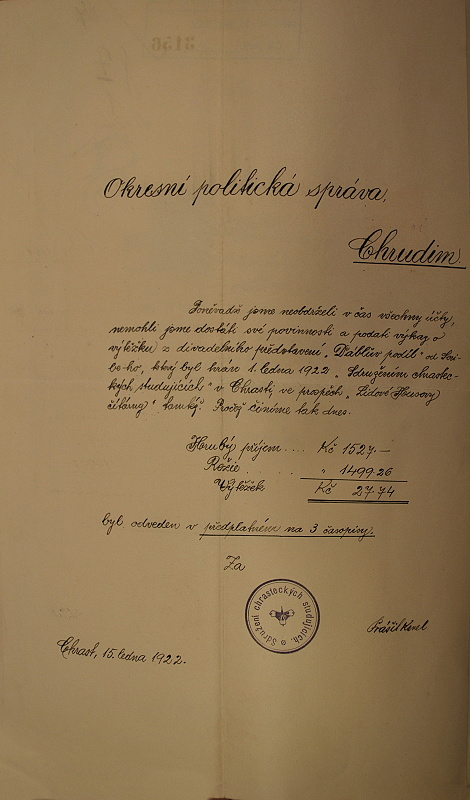 3156
Okresní politická správa,
Chrudim.
Poněvadž jsme neobdrželi v čas všechny účty,
nemohli jsme dostáti své povinnosti a podati výkaz o
výtěžku z divadelního představení „Ďáblův podíl" od Scri-
be-ho, který byl hrán 1. ledna 1922 „Sdružením chrastec-
kých studujících" v Chrasti, ve prospěch „Lidové Husovy
čítárny" tamtéž. Pročež činíme tak dnes.
Hrubý příjem .... Kč 1527.—
Režie . . . . „ 1499.26
Výtěžek Kč 27.74
byl odveden v předplatném na 3 časopisy.
Za
Sdružení chrasteckých studujících.
Prášil Karel
Chrast, 15. ledna 1922.